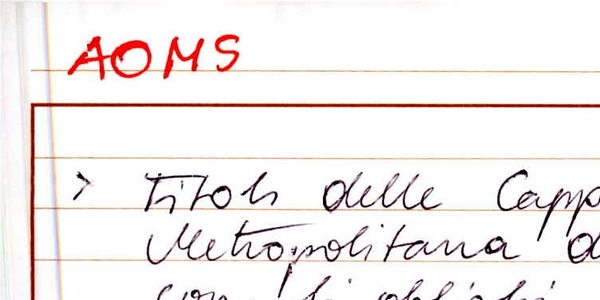 AOMS
> Titoli delle Capp
Metropolitana d
con